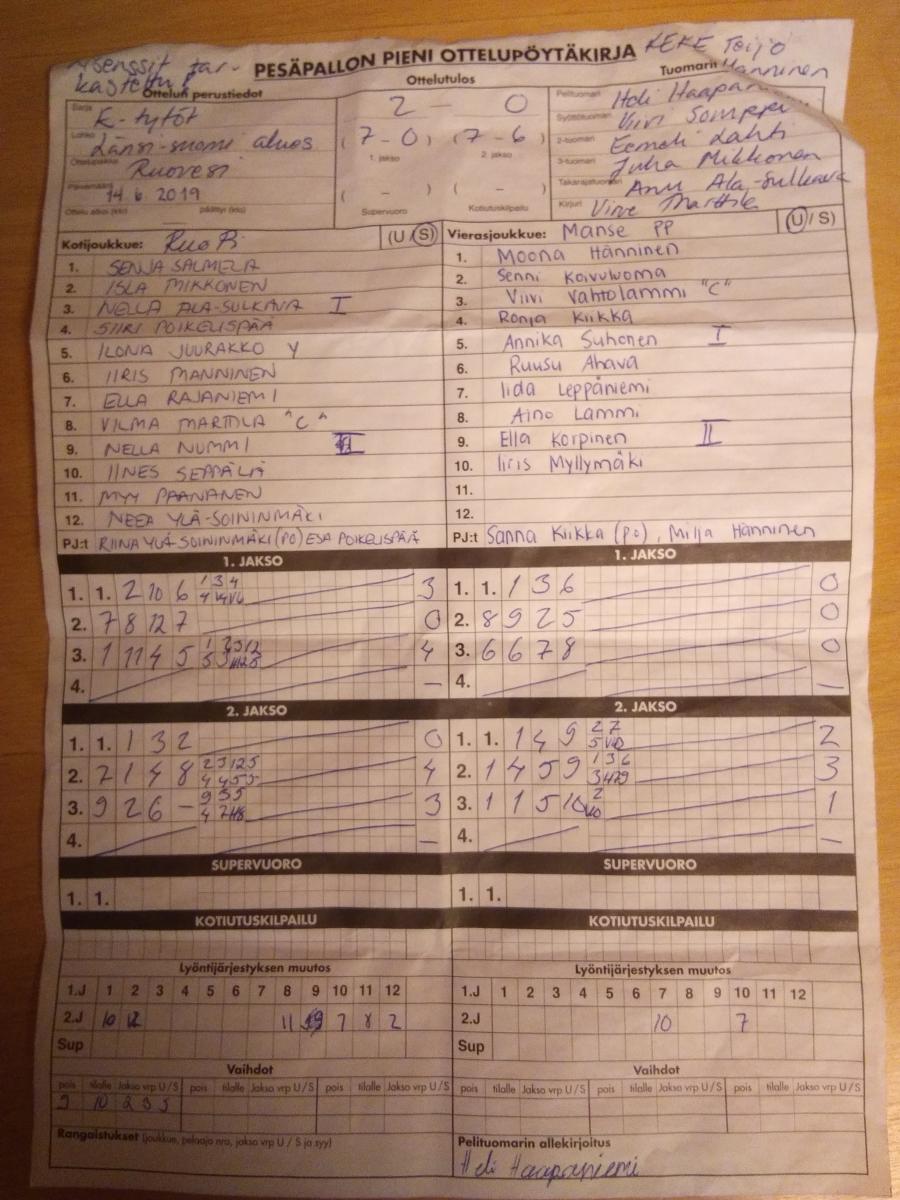 PESÄPALLON PIENI OTTELUPÖYTÄKIRJA
KEKE Toijo
Hänninen
Ottelun perustiedot
Ottelutulos
Tuomarit
Sarja E-tytöt
Lohko Länsi-suomi alues
Ottelupaikka Ruovesi
Päivämäärä 14.6.2019
Ottelu alkoi (klo) päättyi (klo)
2 - 0
(7-0) (7-6)
1. jakso 2. jakso
( - ) ( - )
Supervuoro Kotiutuskilpailu
Pelituomari Heli Haapan
Syöttötuomari Viivi Somppi
2-tuomari Eemeli Lahti
3-tuomari Juha Mikkonen
Takarajatuomari Anu Ala-Sulkava
Kirjuri Virve Marttila
Kotijoukkue: RuoPi (U/S)
1. SENJA SALMELA
2. ISLA MIKKONEN
3. NELLA ALA-SULKAVA I
4. SIIRI POIKELISPÄÄ
5. ILONA JUURAKKO Y
6. IIRIS MANNINEN
7. ELLA RAJANIEMI
8. VILMA MARTTILA "C"
9. NELLA NUMMI
10. IINES SEPPÄLÄ
11. MYY PAANANEN
12. NEEA YLÄ-SOININMÄKI
PJ:t RIINA YLÄ-SOININMÄKI (PO) ESA POIKELISPÄÄ
Vierasjoukkue: Manse PP (U/S)
1. Moona Hänninen
2. Senni Koivuluoma
3. Viivi Vahtolammi "C"
4. Ronja Kiikka
5. Annika Suhonen I
6. Ruusu Ahava
7. Iida Leppäniemi
8. Aino Lammi
9. Ella Korpinen II
10. Iiris Myllymäki
11.
12.
PJ:t Sanna Kiikka (po), Milja Hänninen
1. JAKSO
1. 1. 2 10 6 3
2. 7 8 12 7 0
3. 1 11 4 5 4
4. —
1. JAKSO
1. 1. 1 3 6 0
2. 8 9 2 5 0
3. 6 6 7 8 0
4. —
2. JAKSO
1. 1. 1 3 2 0
2. 7 1 4 8 4
3. 9 2 6 - 3
4. —
2. JAKSO
1. 1. 1 4 9 2
2. 1 4 5 9 3
3. 1 1 5 10 1
4. —
SUPERVUORO
1. 1.
SUPERVUORO
1. 1.
KOTIUTUSKILPAILU
KOTIUTUSKILPAILU
Lyöntijärjestyksen muutos
1.J 1 2 3 4 5 6 7 8 9 10 11 12
2.J 10 12 11 7 8 2
Sup
Lyöntijärjestyksen muutos
1.J 1 2 3 4 5 6 7 8 9 10 11 12
2.J 10 7
Sup
Vaihdot
pois tilalle Jakso vrp U/S pois tilalle Jakso vrp U/S pois tilalle Jakso vrp U/S
9 10 2 3 S
Vaihdot
pois tilalle Jakso vrp U/S pois tilalle Jakso vrp U/S pois tilalle Jakso vrp U/S
Rangaistukset (joukkue, pelaaja nro, jakso vrp U / S ja syy)
Pelituomarin allekirjoitus
Heli Haapaniemi